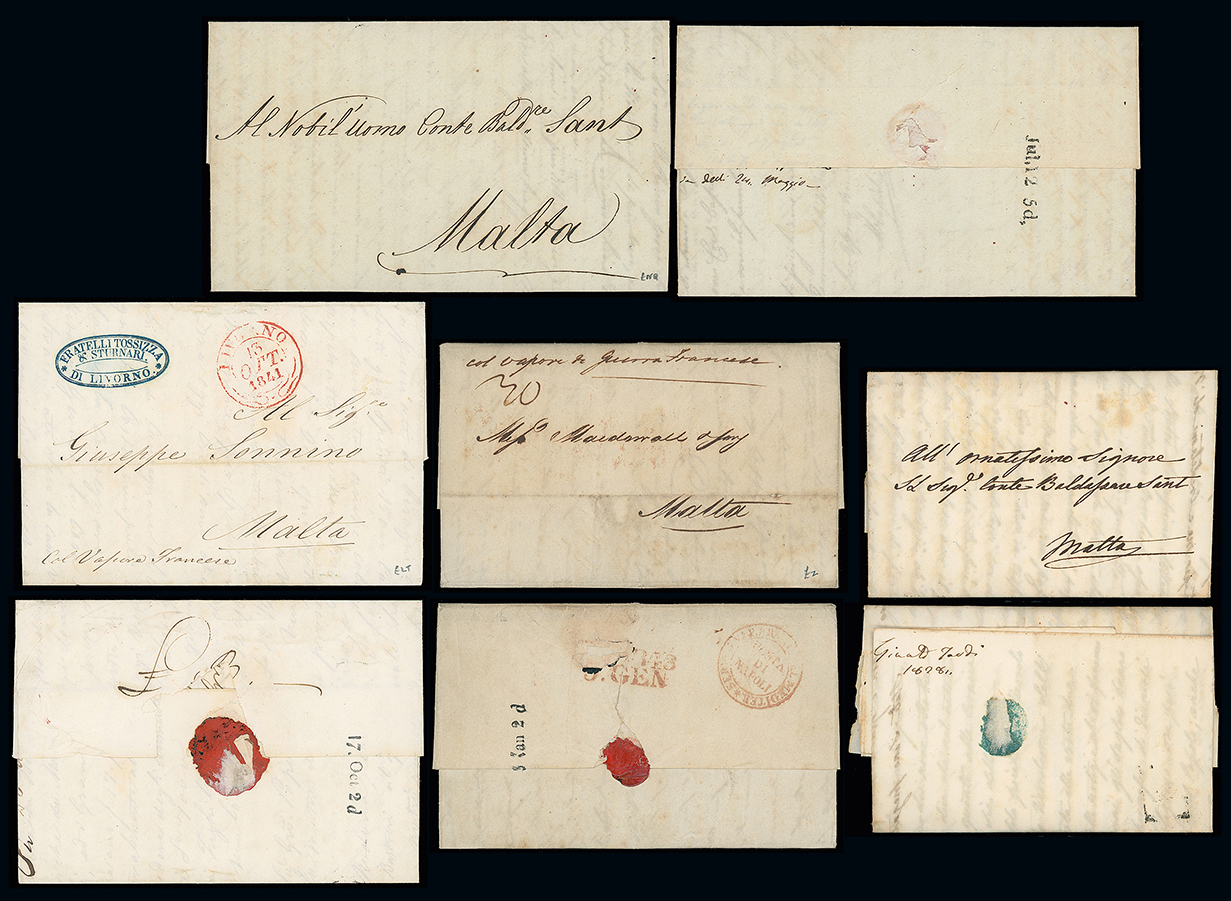 Al Nobil'Uomo Conte Bald.re Sant
Malta
Jul, 2 5d,
dedi 24. Maggio
FRATELLI TOSSIZZA
& STURNARI.
DI LIVORNO.
LIVORNO
13
OTT.
1841
All Sig.re
Giuseppe Sonnino
Malta
Col Vapore Francese
col vapore di Guerra Francese.
Malta
All' ornatissimo Signore
Il Sig.r Conte Baldassare Sant
Malta
17. Oct 2d
GEN
DI
NAPOLI
Jan 2 d
1828.